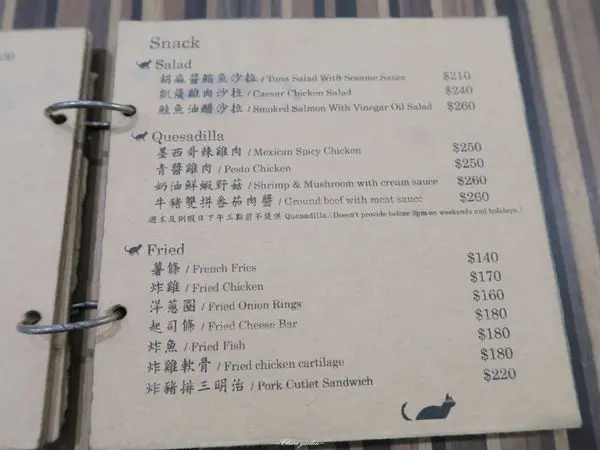 Snack
Salad
胡麻醬鮪魚沙拉 / Tuna Salad With Sesame Sauce $210
凱薩雞肉沙拉 / Caesar Chicken Salad $240
鮭魚油醋沙拉 / Smoked Salmon With Vinegar Oil Salad $260
Quesadilla
墨西哥辣雞肉 / Mexican Spicy Chicken $250
青醬雞肉 / Pesto Chicken $250
奶油鮮蝦野菇 / Shrimp & Mushroom with cream sauce $260
牛豬雙拼番茄肉醬 / Ground beef with meat sauce $260
週末及例假日下午三點前不提供 Quesadilla.( Doesn't provide before 3pm on weekends and holidays.)
Fried
薯條 / French Fries $140
炸雞 / Fried Chicken $170
洋蔥圈 / Fried Onion Rings $160
起司條 / Fried Cheese Bar $180
炸魚 / Fried Fish $180
炸雞軟骨 / Fried chicken cartilage $180
炸豬排三明治 / Pork Cutlet Sandwich $220